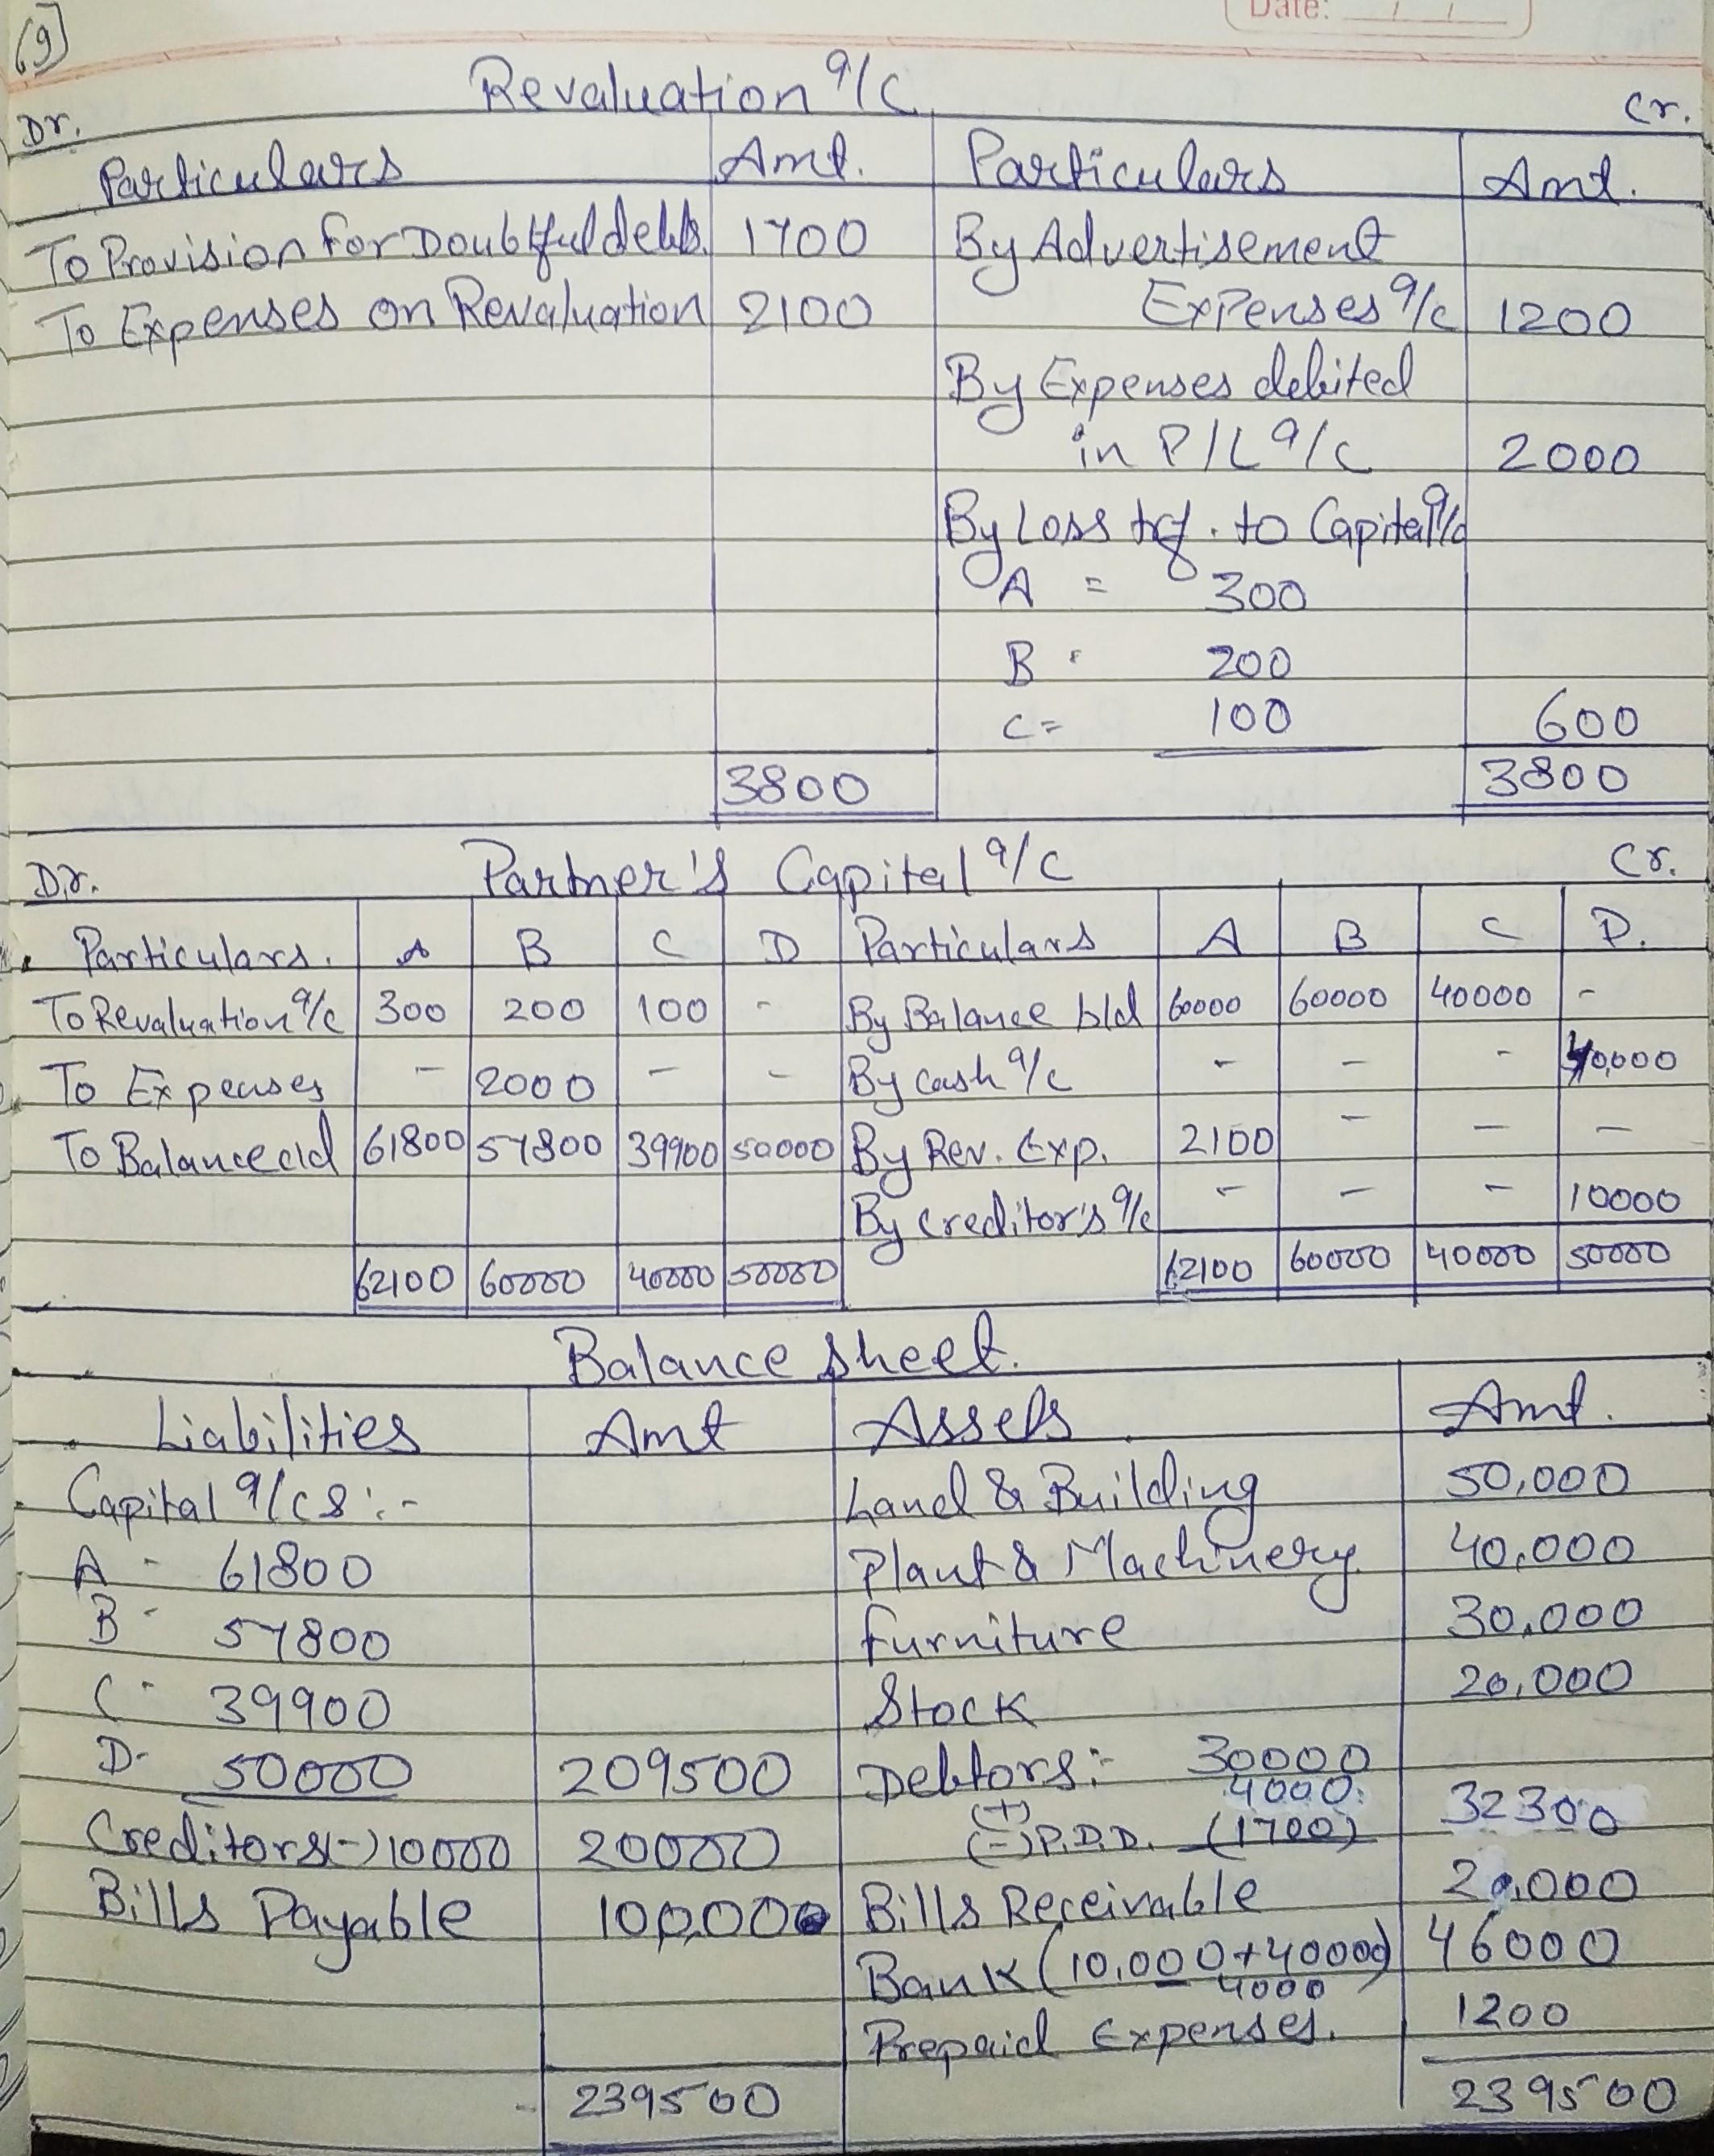 Date: / /
(9)
Revaluation a/c
Dr. Cr.
Particulars Amt. Particulars Amt.
To Provision for Doubtful debts. 1700 By Advertisement
Expenses a/c 1200
To Expenses on Revaluation 2100
By Expenses debited
in P/L a/c 2000
By Loss trf. to Capital a/c
A = 300
B 200
C = 100 600
3800 3800
Dr. Partner's Capital a/c Cr.
Particulars. A B C D Particulars A B C D.
To Revaluation a/c 300 200 100 - By Balance b/d 60000 60000 40000 -
To Expenses - 2000 - - By Cash a/c - - - 40,000
To Balance c/d 61800 57800 39900 50000 By Rev. Exp. 2100 - - -
By Creditor's a/c - - - 10000
62100 60000 40000 50000 62100 60000 40000 50000
Balance Sheet.
Liabilities Amt Assets Amt.
Capital a/cs :- Land & Building 50,000
A - 61800 Plant & Machinery 40,000
B - 57800 Furniture 30,000
C - 39900 Stock 20,000
D- 50000 209500 Debtors:- 30000
(+) 4000
Creditors(-)10000 20000 (-) P.D.D. (1700) 32300
Bills Payable 10,000 Bills Receivable 20,000
Bank (10,000+40000) 46000
4000
Prepaid Expenses. 1200
239500 239500